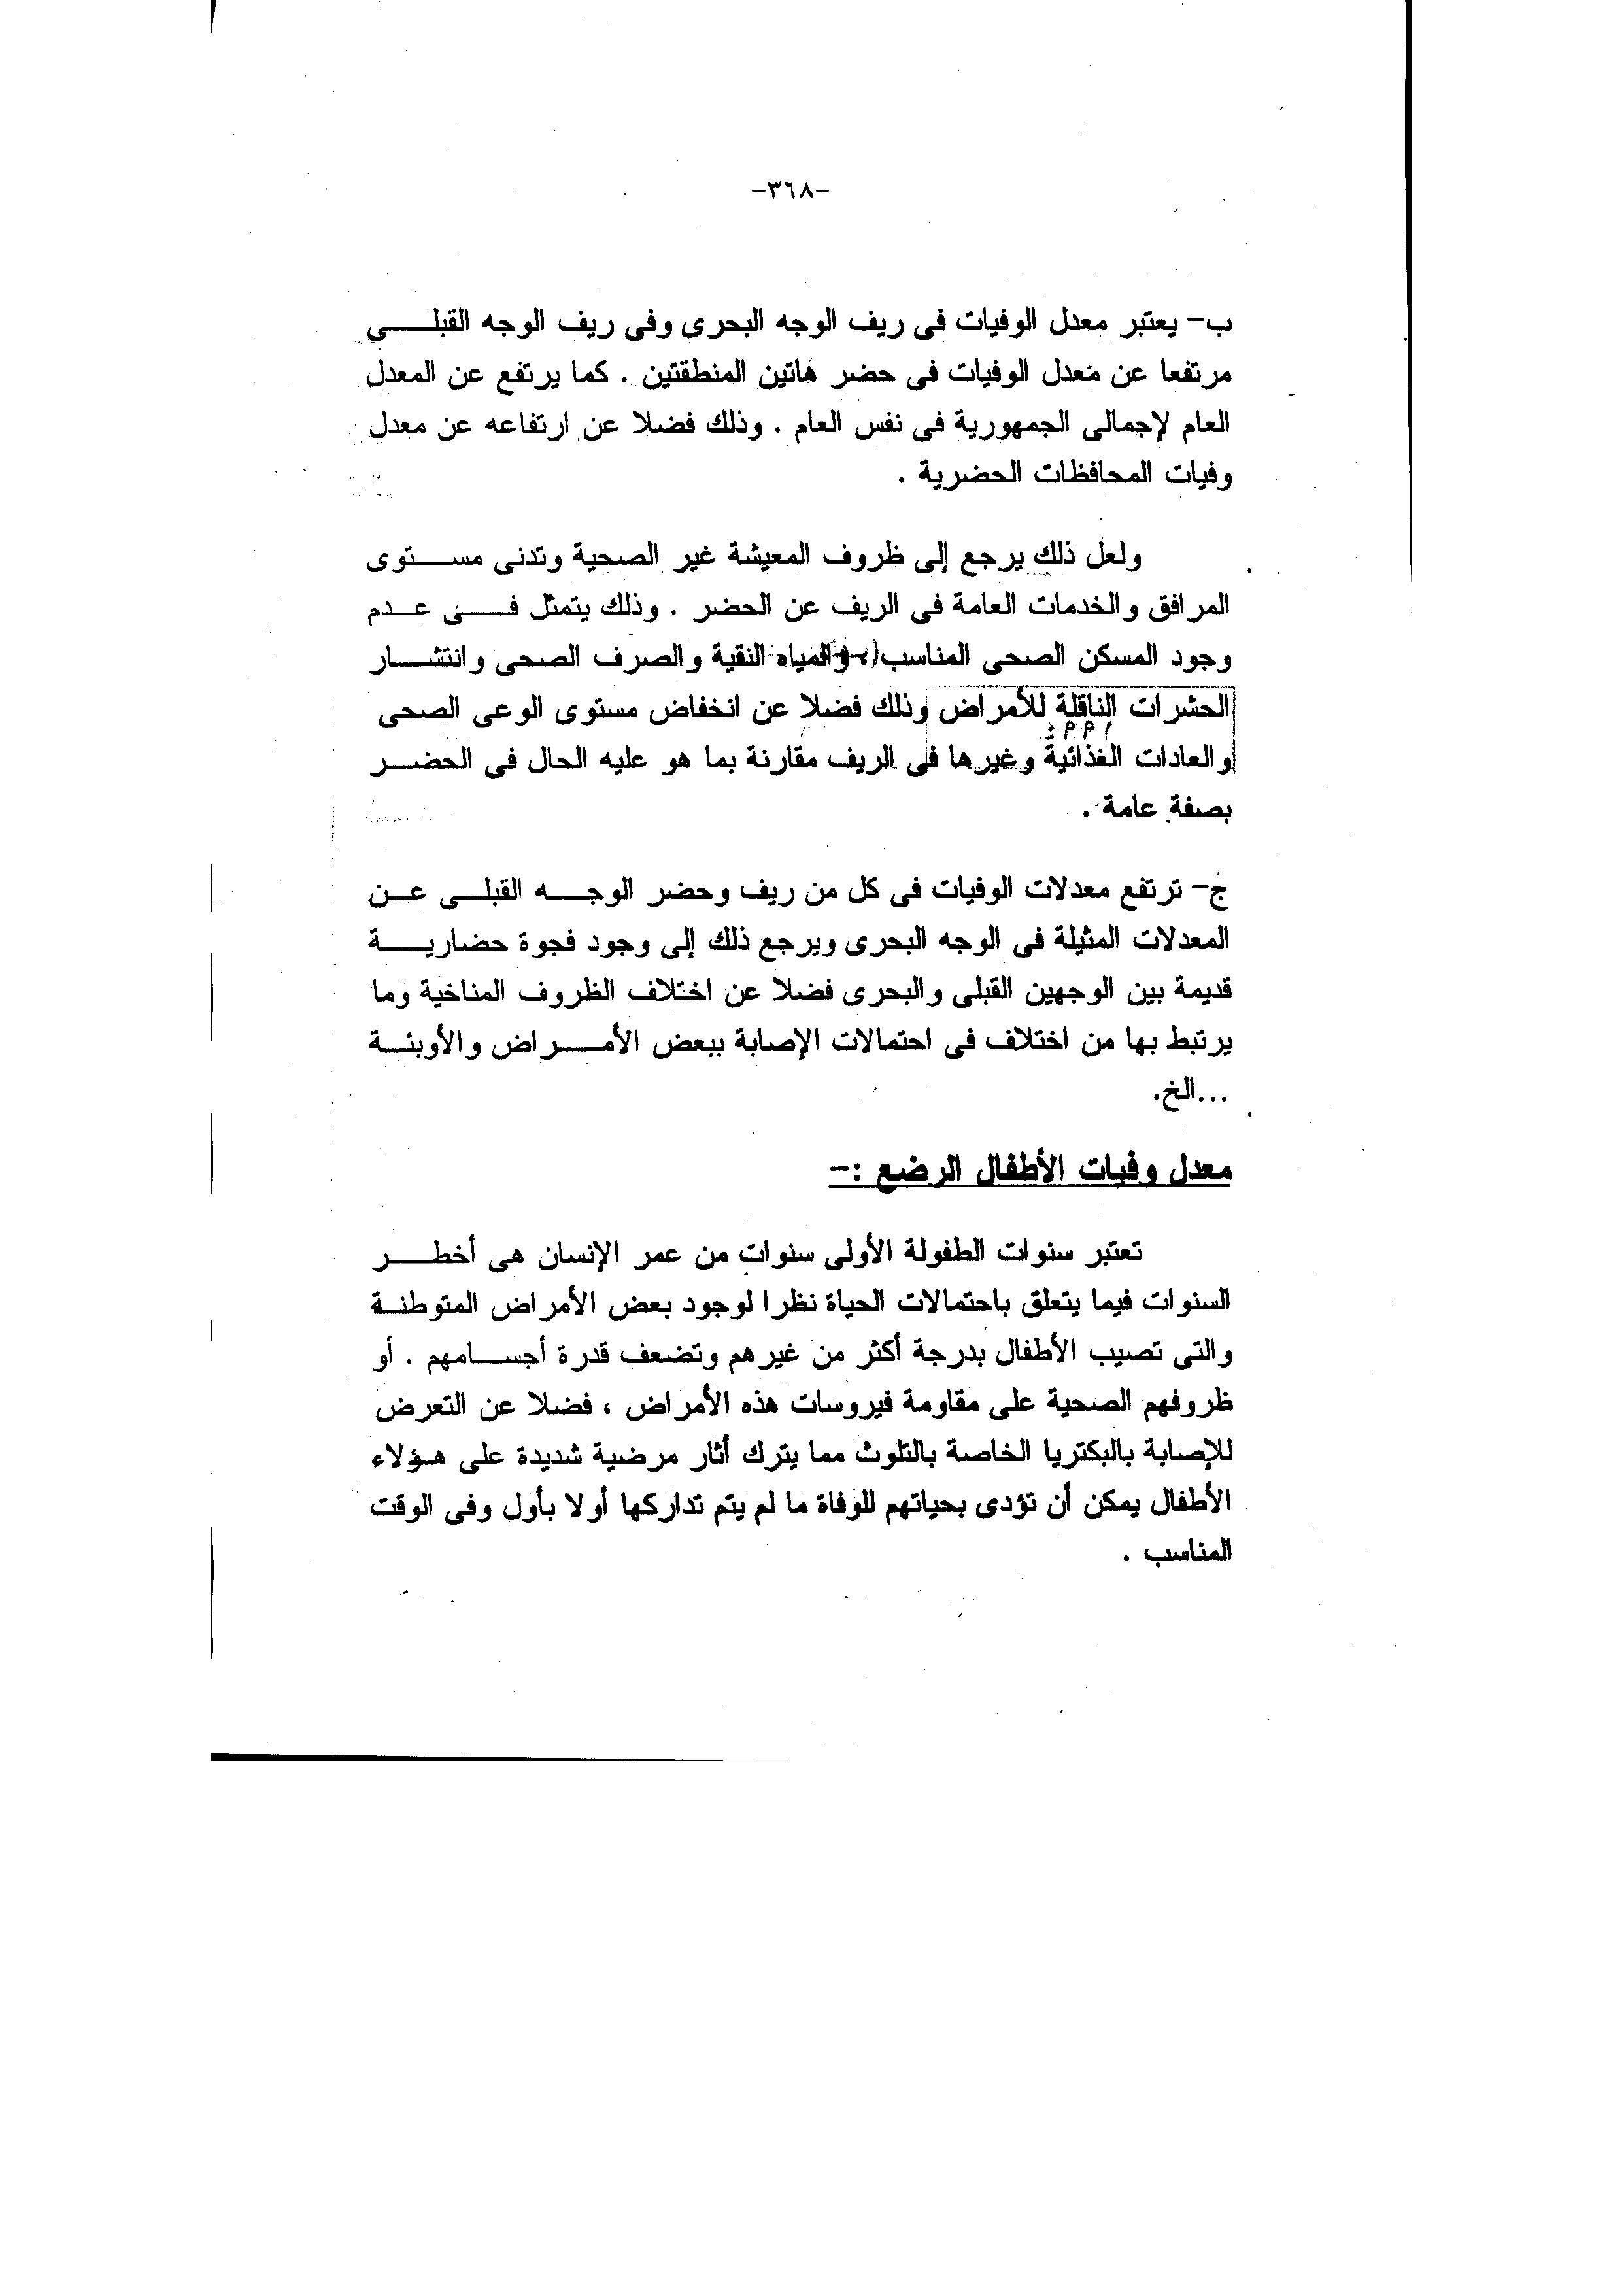 -٣٦٨-
ب- يعتبر معدل الوفيات فى ريف الوجه البحرى وفى ريف الوجه القبلى
مرتفعا عن معدل الوفيات فى حضر هاتين المنطقتين . كما يرتفع عن المعدل
العام لإجمالى الجمهورية فى نفس العام . وذلك فضلا عن ارتفاعه عن معدل
وفيات المحافظات الحضرية .
ولعل ذلك يرجع إلى ظروف المعيشة غير الصحية وتدنى مستوى
المرافق والخدمات العامة فى الريف عن الحضر . وذلك يتمثل فى عدم
وجود المسكن الصحى المناسب والمياه النقية والصرف الصحى وانتشار
الحشرات الناقلة للأمراض وذلك فضلا عن انخفاض مستوى الوعى الصحى
والعادات الغذائية وغيرها فى الريف مقارنة بما هو عليه الحال فى الحضر
بصفة عامة .
ج- ترتفع معدلات الوفيات فى كل من ريف وحضر الوجه القبلى عن
المعدلات المثيلة فى الوجه البحرى ويرجع ذلك إلى وجود فجوة حضارية
قديمة بين الوجهين القبلى والبحرى فضلا عن اختلاف الظروف المناخية وما
يرتبط بها من اختلاف فى احتمالات الإصابة ببعض الأمراض والأوبئة
...الخ.
معدل وفيات الأطفال الرضع :-
تعتبر سنوات الطفولة الأولى سنوات من عمر الإنسان هى أخطر
السنوات فيما يتعلق باحتمالات الحياة نظرا لوجود بعض الأمراض المتوطنة
والتى تصيب الأطفال بدرجة أكثر من غيرهم وتضعف قدرة أجسامهم . أو
ظروفهم الصحية على مقاومة فيروسات هذه الأمراض ، فضلا عن التعرض
للإصابة بالبكتريا الخاصة بالتلوث مما يترك أثار مرضية شديدة على هؤلاء
الأطفال يمكن أن تؤدى بحياتهم للوفاة ما لم يتم تداركها أولا بأول وفى الوقت
المناسب .